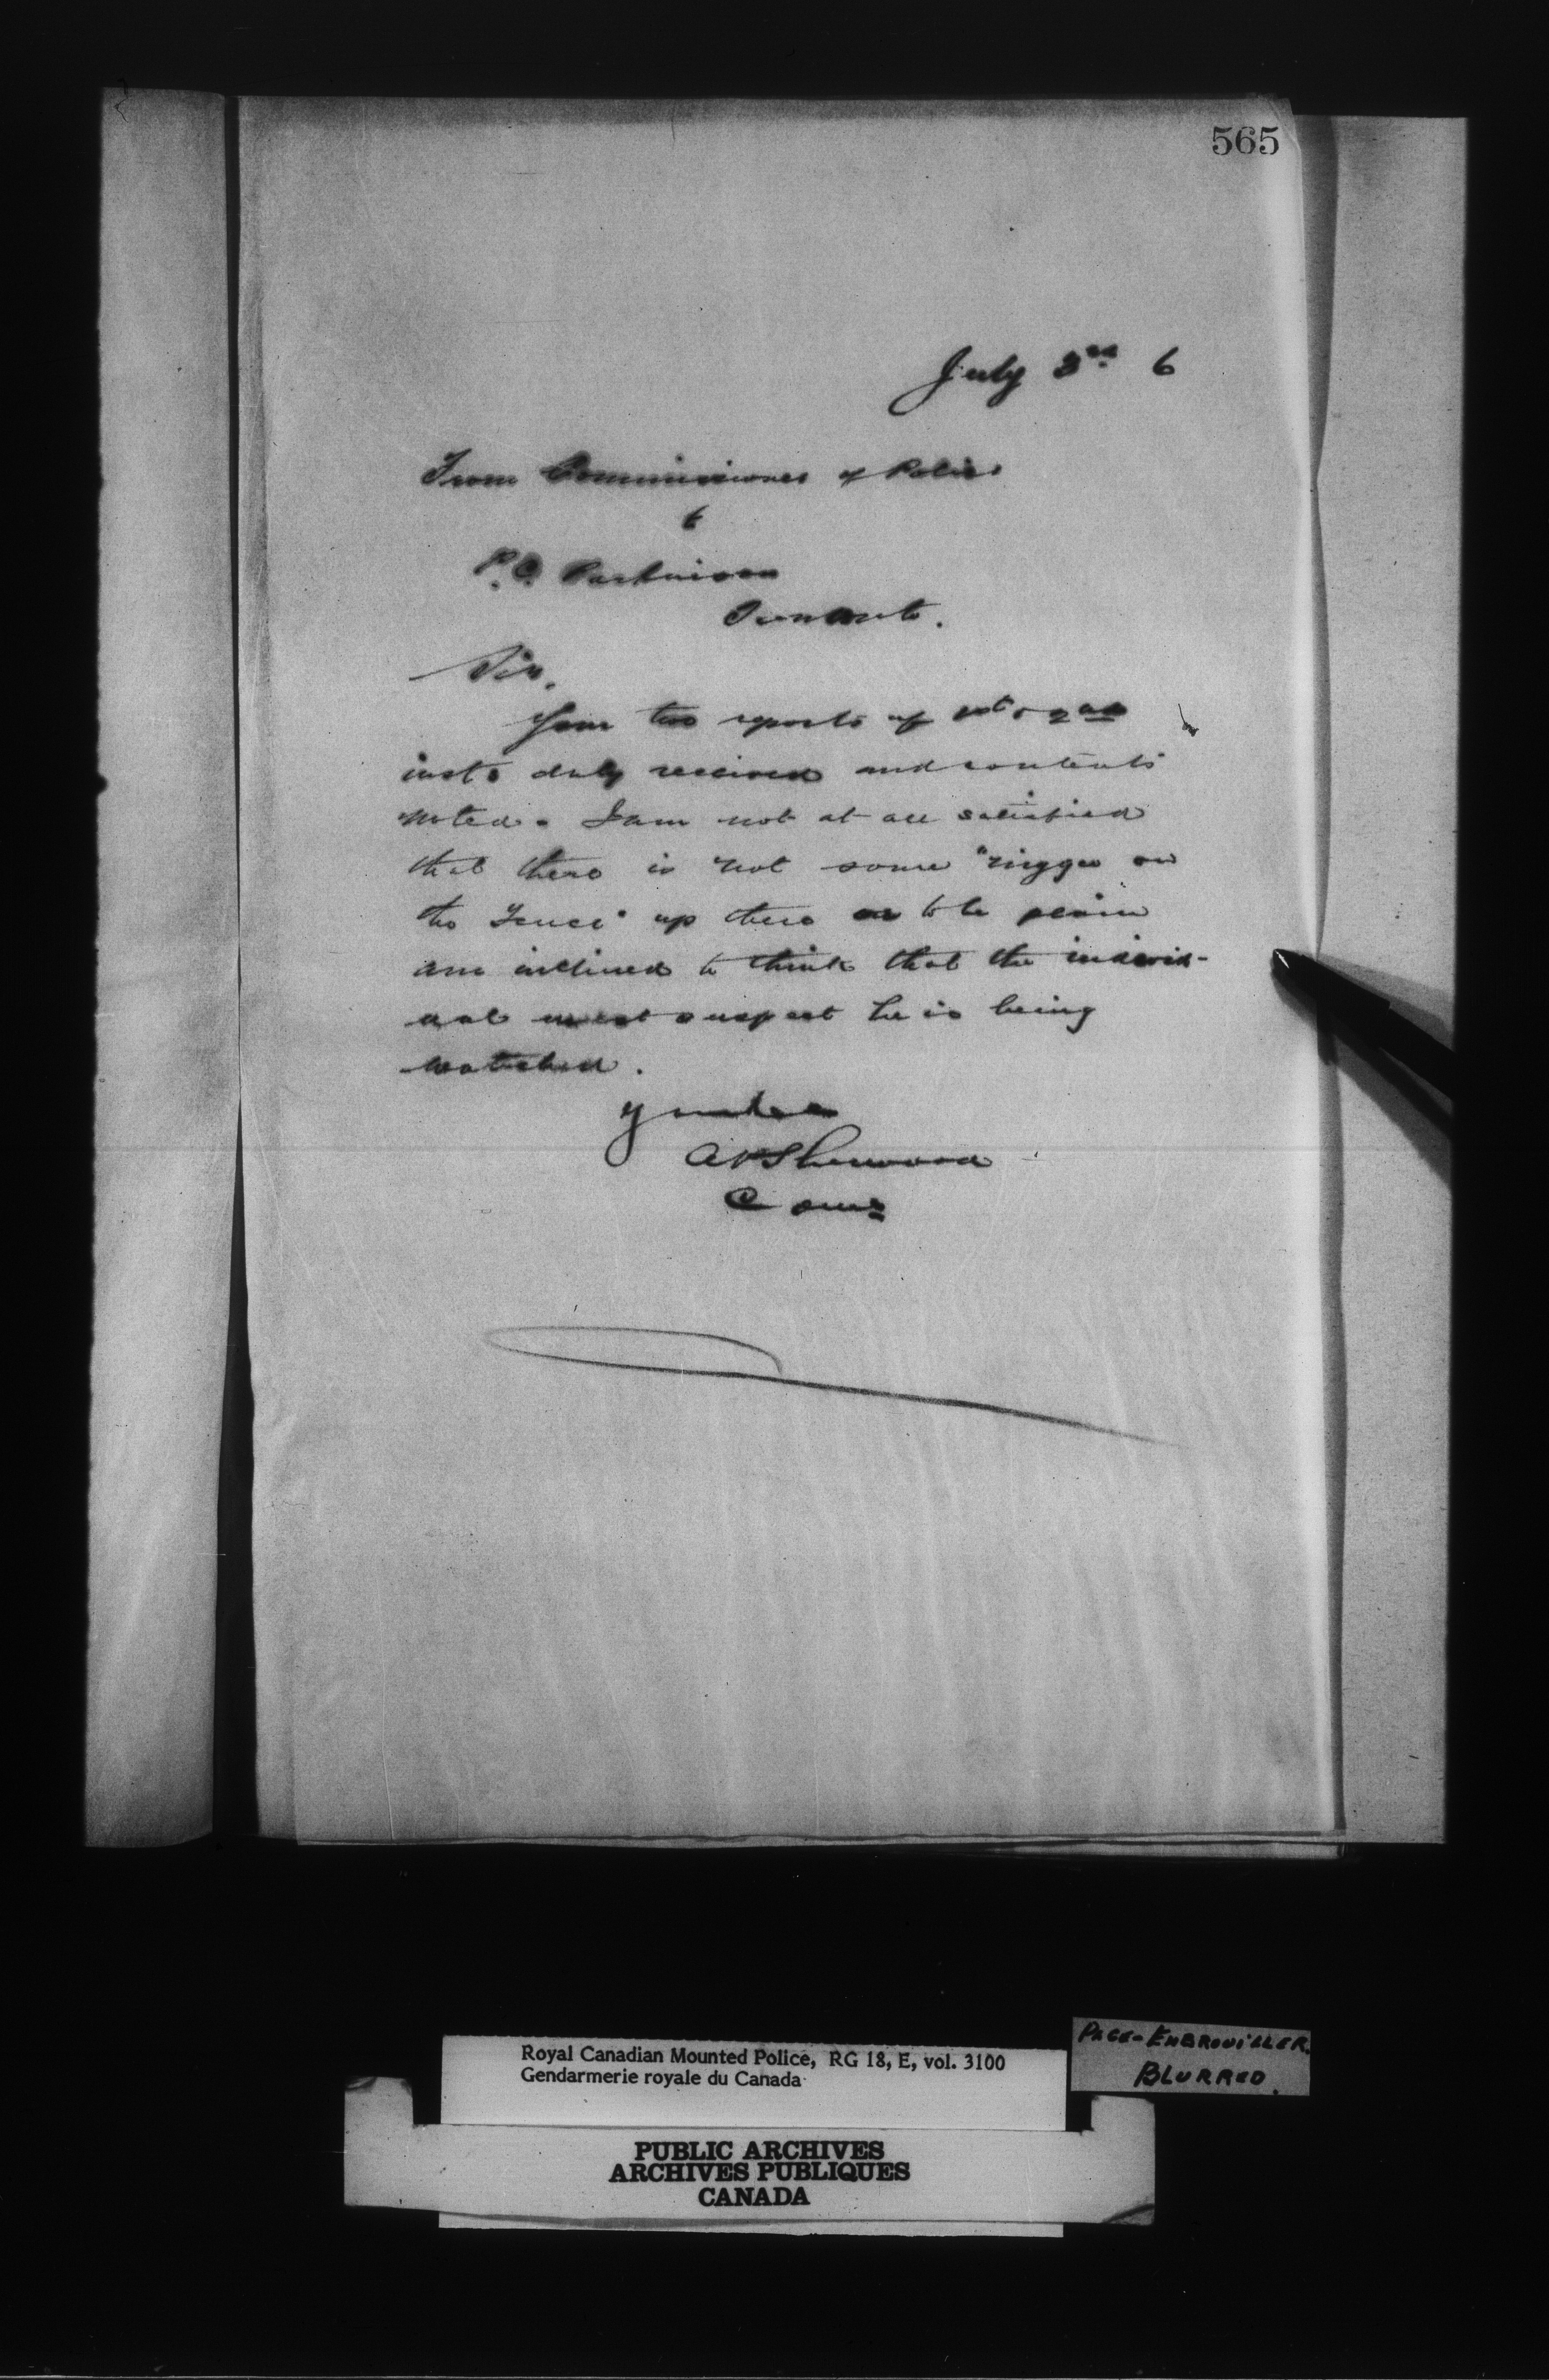 565
July 3rd 6
From Commissioner of Police
to
P.C. Parkinson
Toronto.
Sir,
Your two reports of 1st & 2nd
inst. duly received and contents
noted. I am not at all satisfied
that there is not some "nigger on
the fence" up there or to be
am inclined to think that the individ-
ual must suspect he is being
watched.
Yours &c
A P Sherwood
Comr
Royal Canadian Mounted Police, RG 18, E, vol. 3100
Gendarmerie royale du Canada
PAGE-EMBROUILLER.
BLURRED.
PUBLIC ARCHIVES
ARCHIVES PUBLIQUES
CANADA